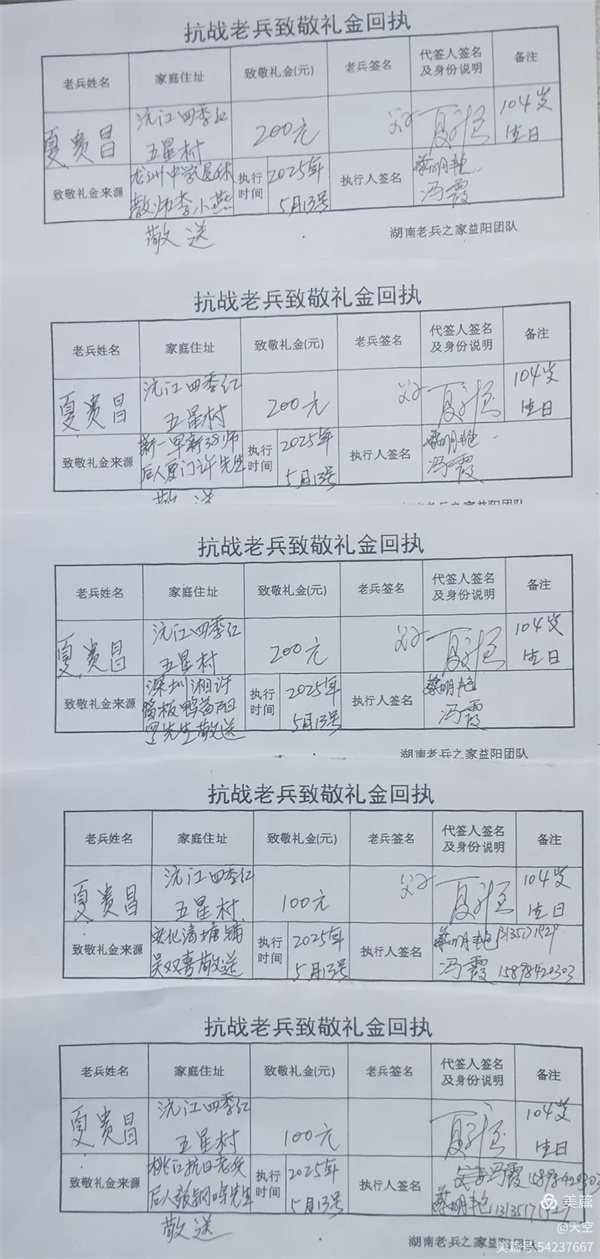 抗战老兵致敬礼金回执
老兵姓名 家庭住址 致敬礼金(元) 老兵签名 代签人签名及身份说明 备注
夏贵昌 沅江四季红五星村 200元 父子 104岁生日
致敬礼金来源 龙洲中学退休教师李小燕敬送 执行时间 2025年5月13号 执行人签名 蔡明艳 冯霞
湖南老兵之家益阳团队
抗战老兵致敬礼金回执
老兵姓名 家庭住址 致敬礼金(元) 老兵签名 代签人签名及身份说明 备注
夏贵昌 沅江四季红五星村 200元 父子 104岁生日
致敬礼金来源 新一军新38师后人厦门许先生敬送 执行时间 2025年5月13号 执行人签名 蔡明艳 冯霞
湖南老兵之家益阳团队
抗战老兵致敬礼金回执
老兵姓名 家庭住址 致敬礼金(元) 老兵签名 代签人签名及身份说明 备注
夏贵昌 沅江四季红五星村 200元 父子 104岁生日
致敬礼金来源 深圳湘许酱板鸭益阳先生敬送 执行时间 2025年5月13号 执行人签名 蔡明艳 冯霞
湖南老兵之家益阳团队
抗战老兵致敬礼金回执
老兵姓名 家庭住址 致敬礼金(元) 老兵签名 代签人签名及身份说明 备注
夏贵昌 沅江四季红五星村 100元 父子 104岁生日
致敬礼金来源 安化清塘铺吴双喜敬送 执行时间 2025年5月13号 执行人签名 蔡明艳 冯霞 15898420303
抗战老兵致敬礼金回执
老兵姓名 家庭住址 致敬礼金(元) 老兵签名 代签人签名及身份说明 备注
夏贵昌 沅江四季红五星村 100元 104岁生日
致敬礼金来源 桃江抗日老兵后人张先生敬送 执行时间 2025年5月13号 执行人签名 父子 冯霞 15898420303 蔡明艳
湖南老兵之家益阳团队
美篇
@天空
54237667